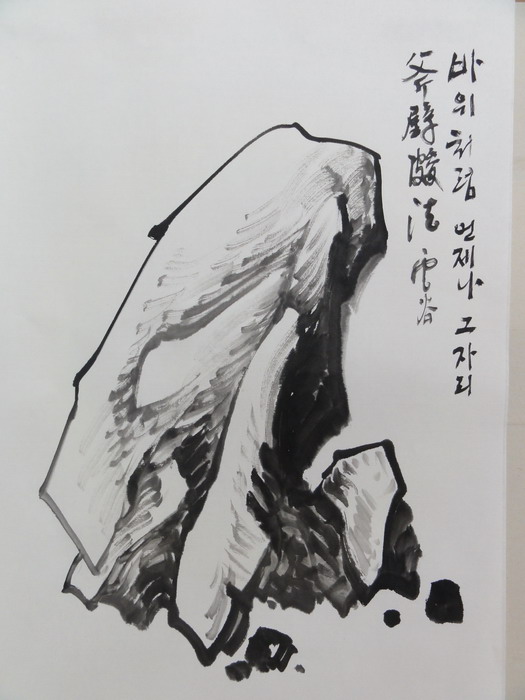 바위처럼 언제나 그자리
斧劈皴法 雲谷